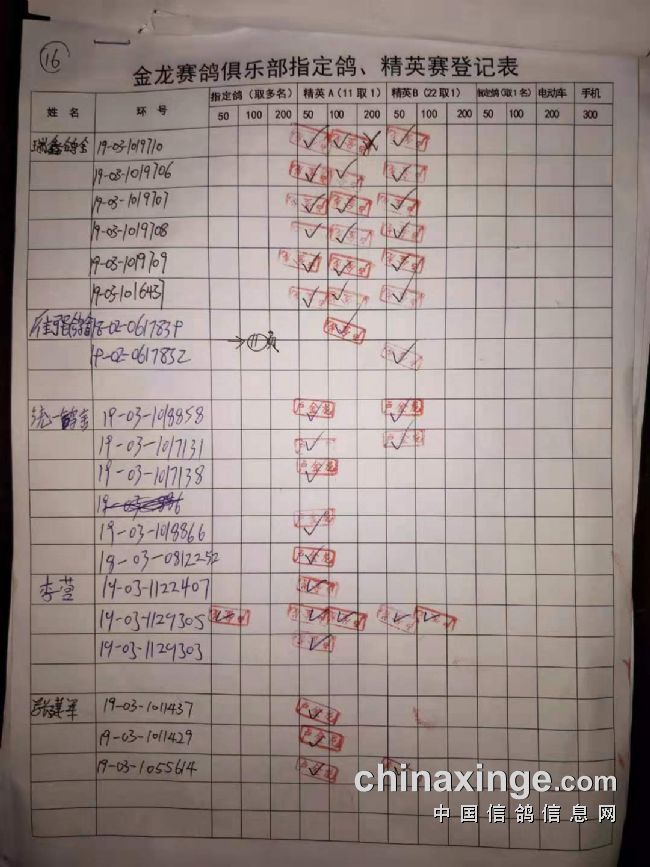 16
金龙赛鸽俱乐部指定鸽、精英赛登记表
姓名 环号 指定鸽（取多名） 精英A（11取1） 精英B（22取1） 指定鸽（取1名） 电动车 手机
50 100 200 50 100 200 50 100 200 50 100 200 200 300
鑫鸽舍 19-03-1019710
19-03-1019706
19-03-1019707
19-03-1019708
19-03-1019709
19-03-101643
18-02-0617839
19-02-0617852 → 11页
统一鸽舍 19-03-1018858
19-03-1017131
19-03-1017138
19-03-1018866
18-03-0812252
李营 19-03-1122407
19-03-1129305
19-03-1129303
张建军 19-03-1011437
19-03-1011429
19-03-1055614
chinaxinge.com
中国信鸽信息网